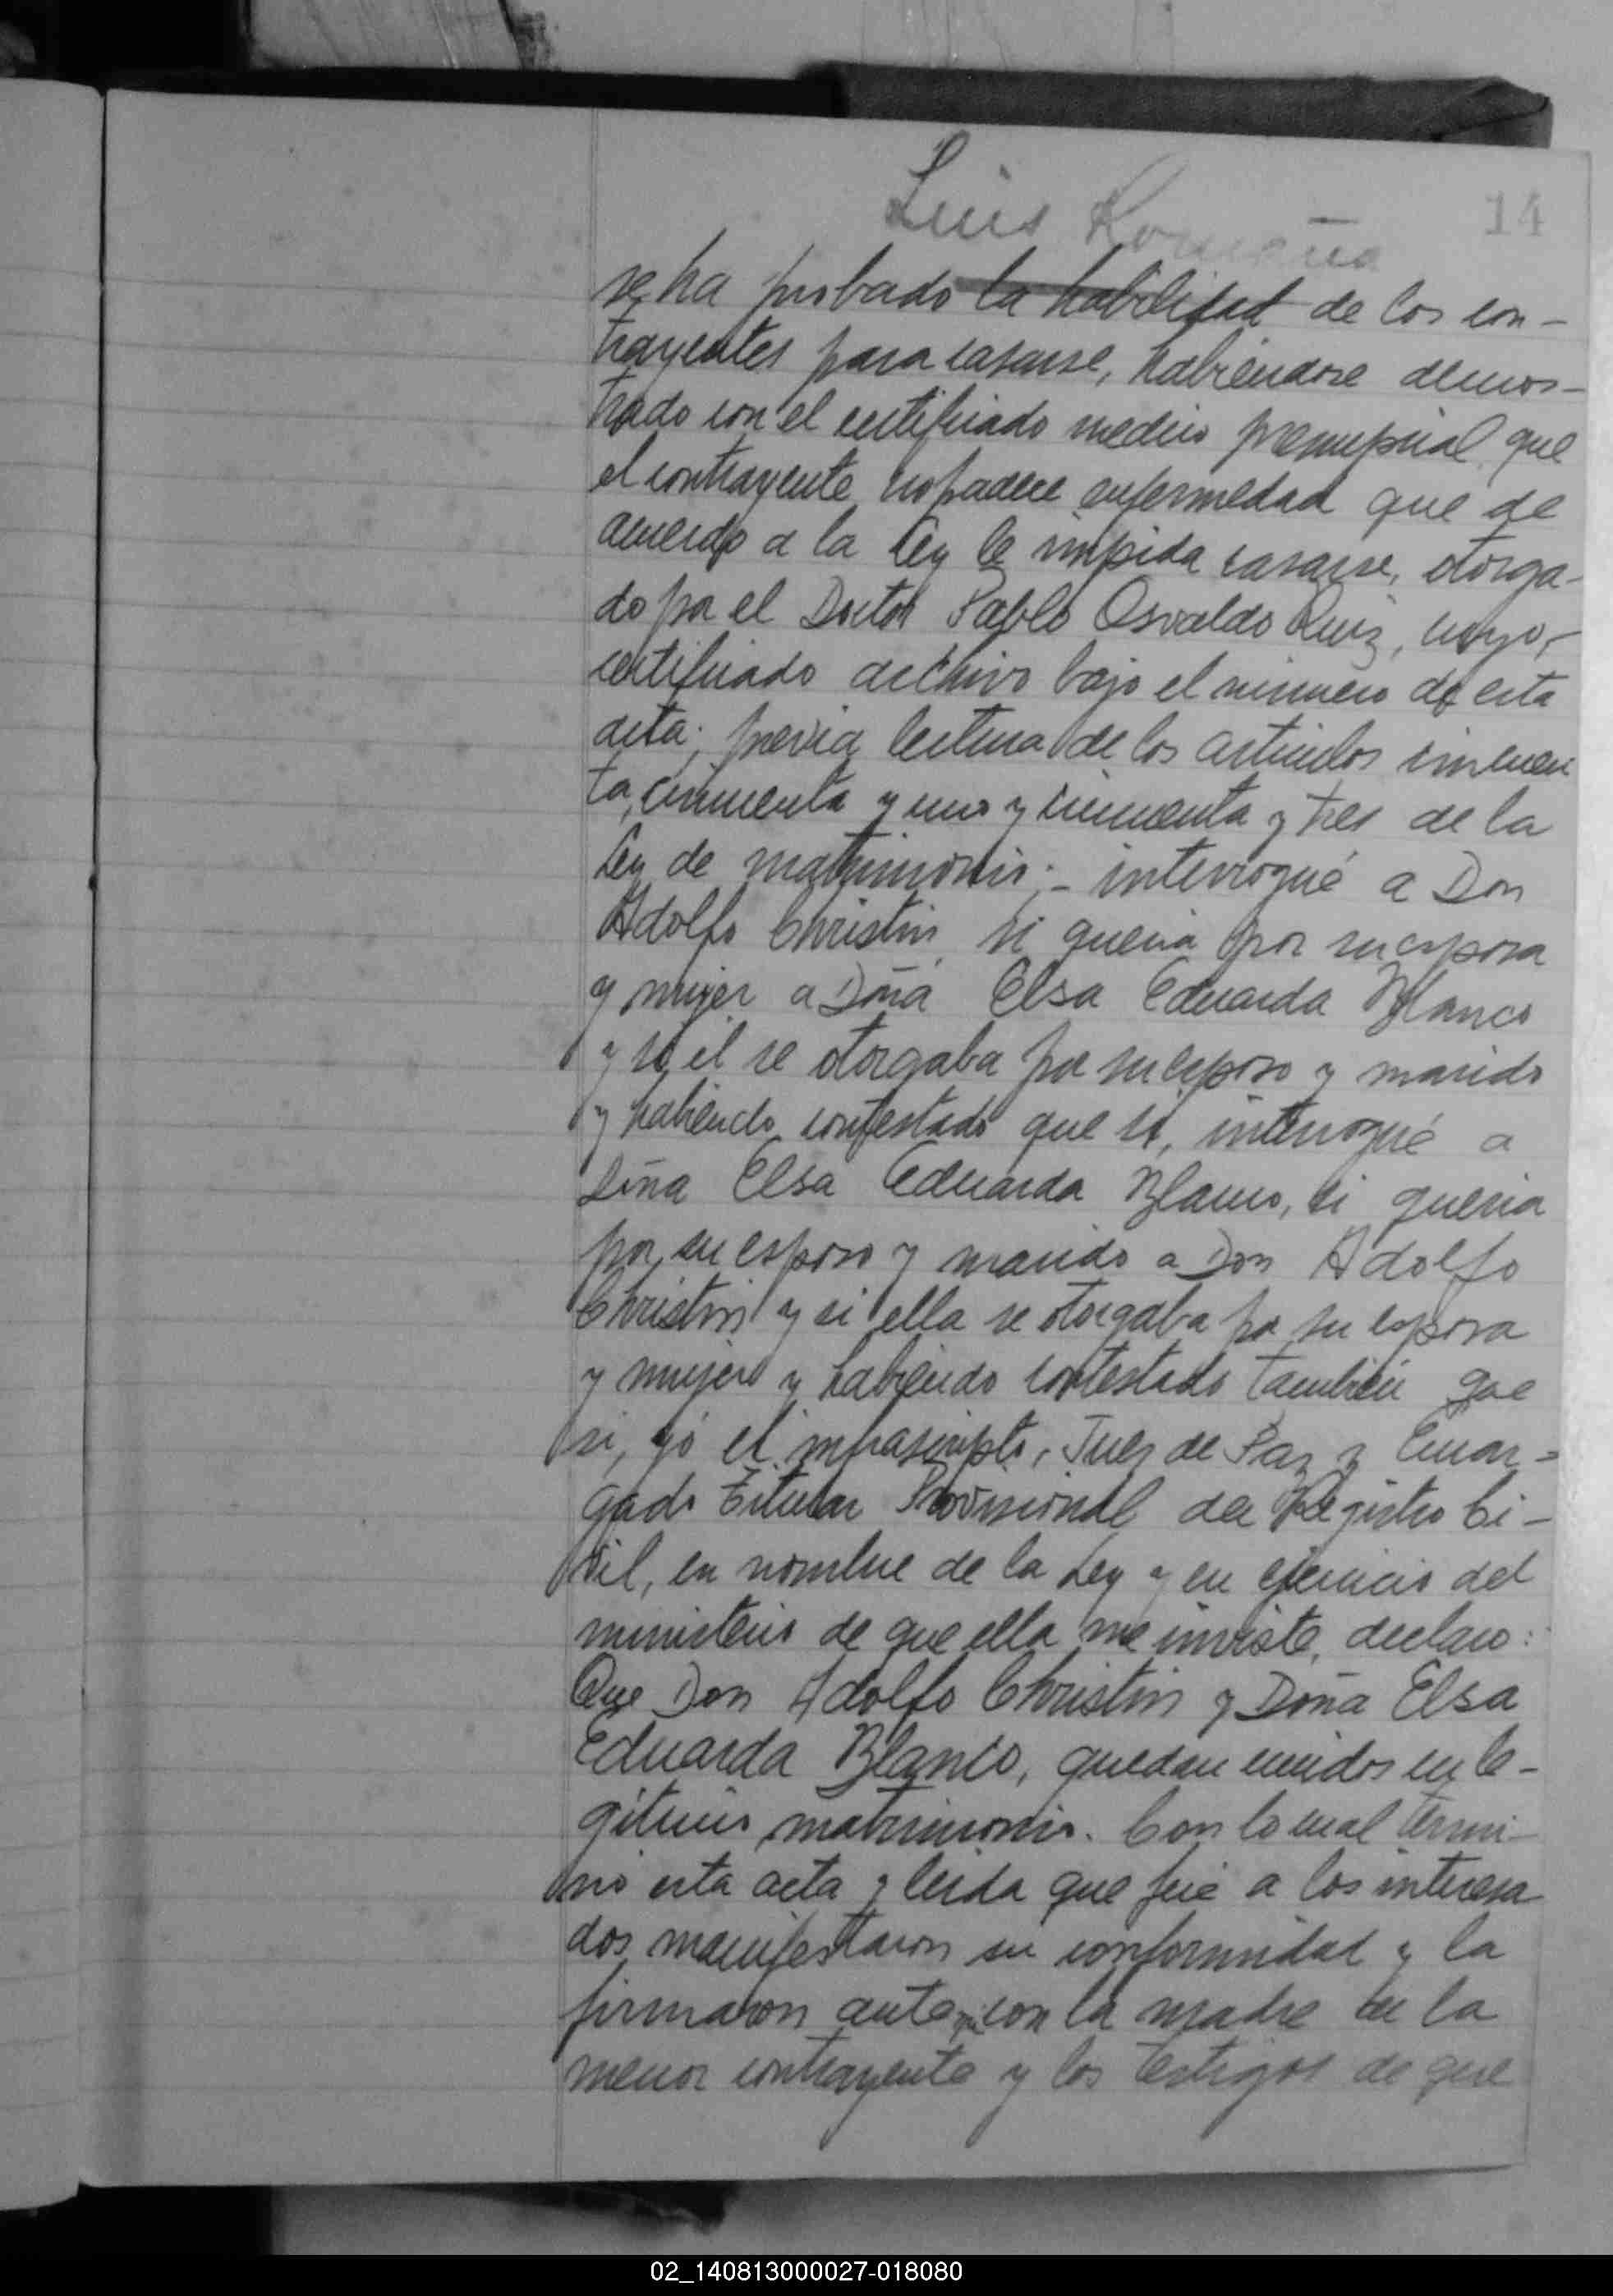 Luis Romaña
14
se ha probado la habilidad de los con-
trayentes para casarse, habiendose demos-
trado con el certificado medico prenupcial que
el contrayente no padece enfermedad que de
acuerdo a la Ley le impida casarse, otorga-
do por el Doctor Pablo Osvaldo Ruiz, cuyo,-
certificado archivo bajo el número de esta
acta; previa lectura de los artículos cincuen
ta, cincuenta y uno y cincuenta y tres de la
Ley de matrimonio;- interrogué a Don
Adolfo Christin, si queria por su esposa
y mujer a Doña Elsa Eduarda Blanco
y si él se otorgaba por su esposo y marido
y habiendo contestado que si, interrogué a
Doña Elsa Eduarda Blanco, si queria
por su esposo y marido a Don Adolfo
Christin y si ella se otorgaba por su esposa
y mujer y habiendo contestado también que
si, yó el infrascripto, Juez de Paz y Encar-
gado Titular Provisional del Registro Ci-
vil, en nombre de la Ley y en ejercicio del
ministerio de que ella me inviste, declaro:
Que Don Adolfo Christin y Doña Elsa
Eduarda Blanco, quedan unidos en le-
gitimo matrimonio. Con lo cual termi-
nó esta acta y leida que fué a los interesa
dos manifestaron su conformidad y la
firmaron ante mi con la madre de la
menor contrayente y los testigos de que
02_140813000027-018080